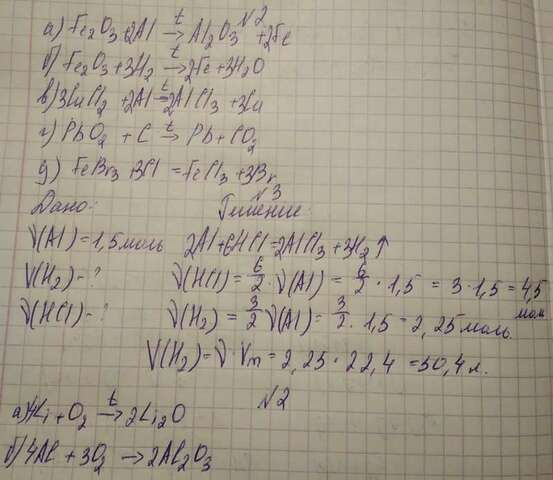 №2
а) Fe₂O₃+2Al →ᵗ Al₂O₃ +2Fe
б) Fe₂O₃+3H₂ →ᵗ 2Fe+3H₂O
в) 3CuCl₂ +2Al =ᵗ 2AlCl₃ +3Cu
г) PbO₂ + C →ᵗ Pb + CO₂
д) FeBr₃ +3Cl = FeCl₃ +3Br
№3
Дано: Решение:
ν(Al) = 1,5 моль 2Al+6HCl=2AlCl₃+3H₂↑
V(H₂) - ? ν(HCl) = 6/2 · ν(Al) = 6/2 · 1,5 = 3·1,5 = 4,5 моль
ν(HCl) - ? ν(H₂) = 3/2 ν(Al) = 3/2 · 1,5 = 2,25 моль.
V(H₂)=ν · Vm = 2,25 · 22,4 = 50,4 л.
№2
а) 4Li+O₂ →ᵗ 2Li₂O
б) 4Al +3O₂ → 2Al₂O₃